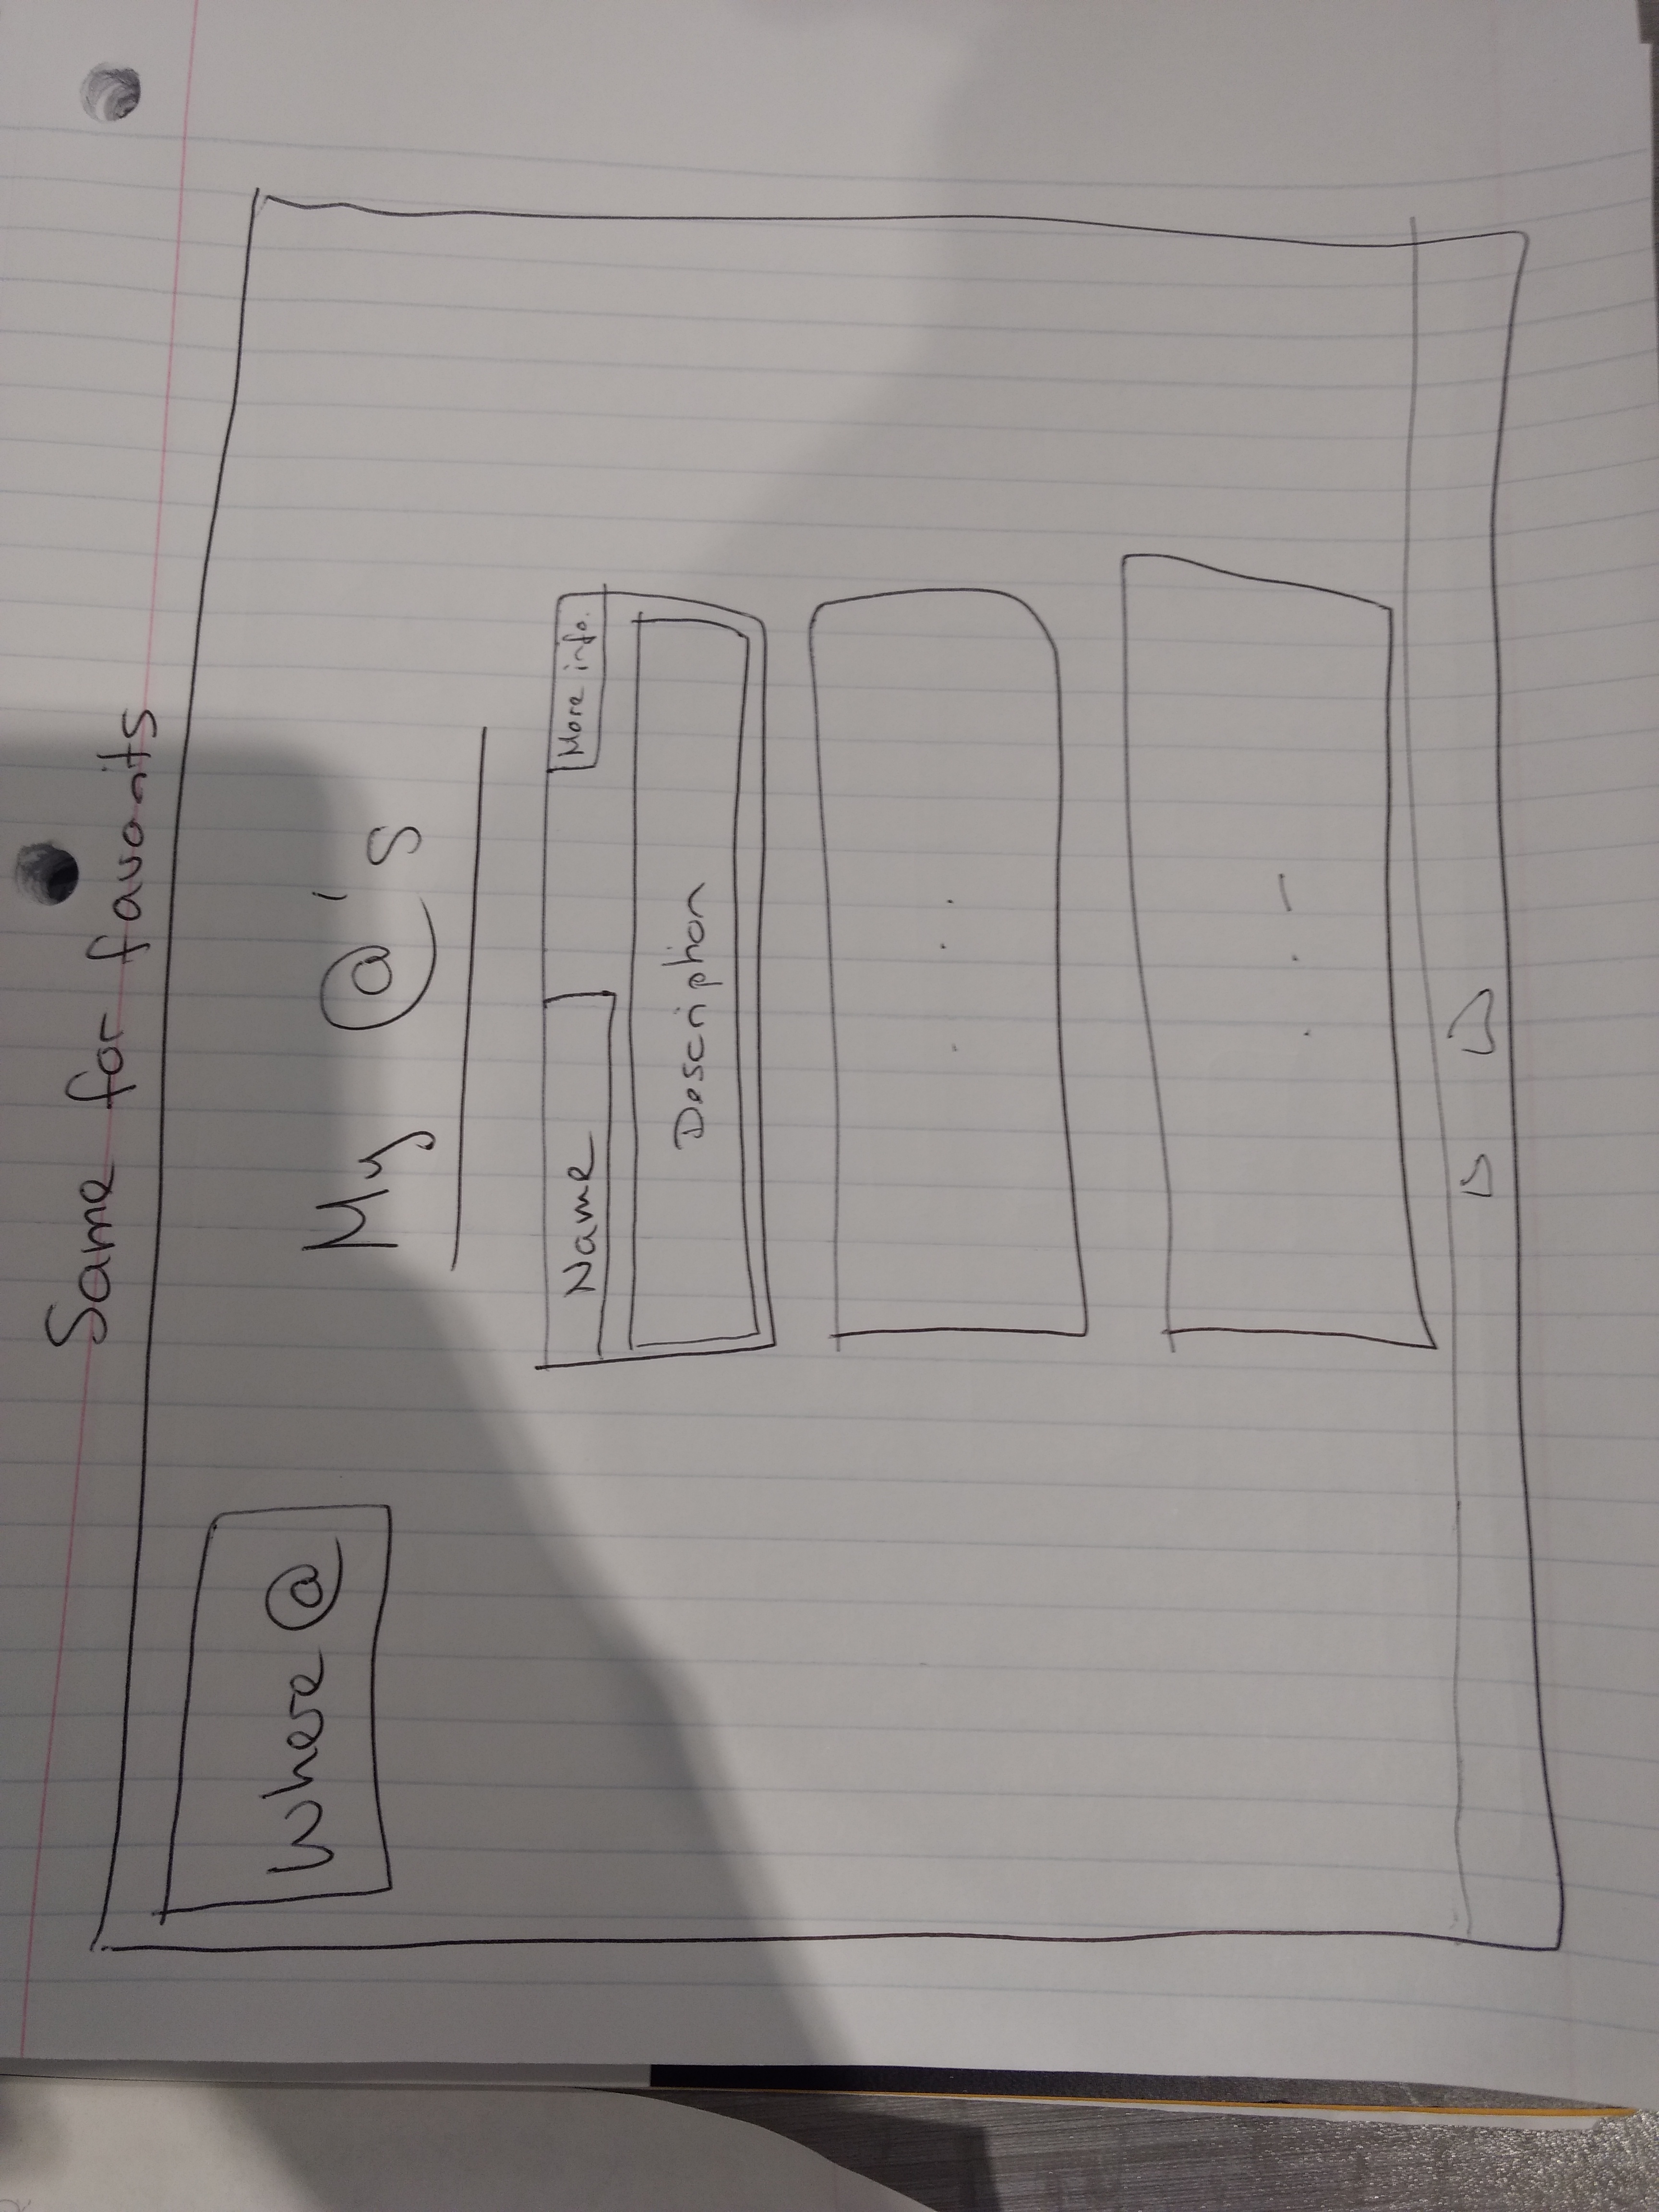 Same for favorits
Where @
My @'s
Name
More info.
Description